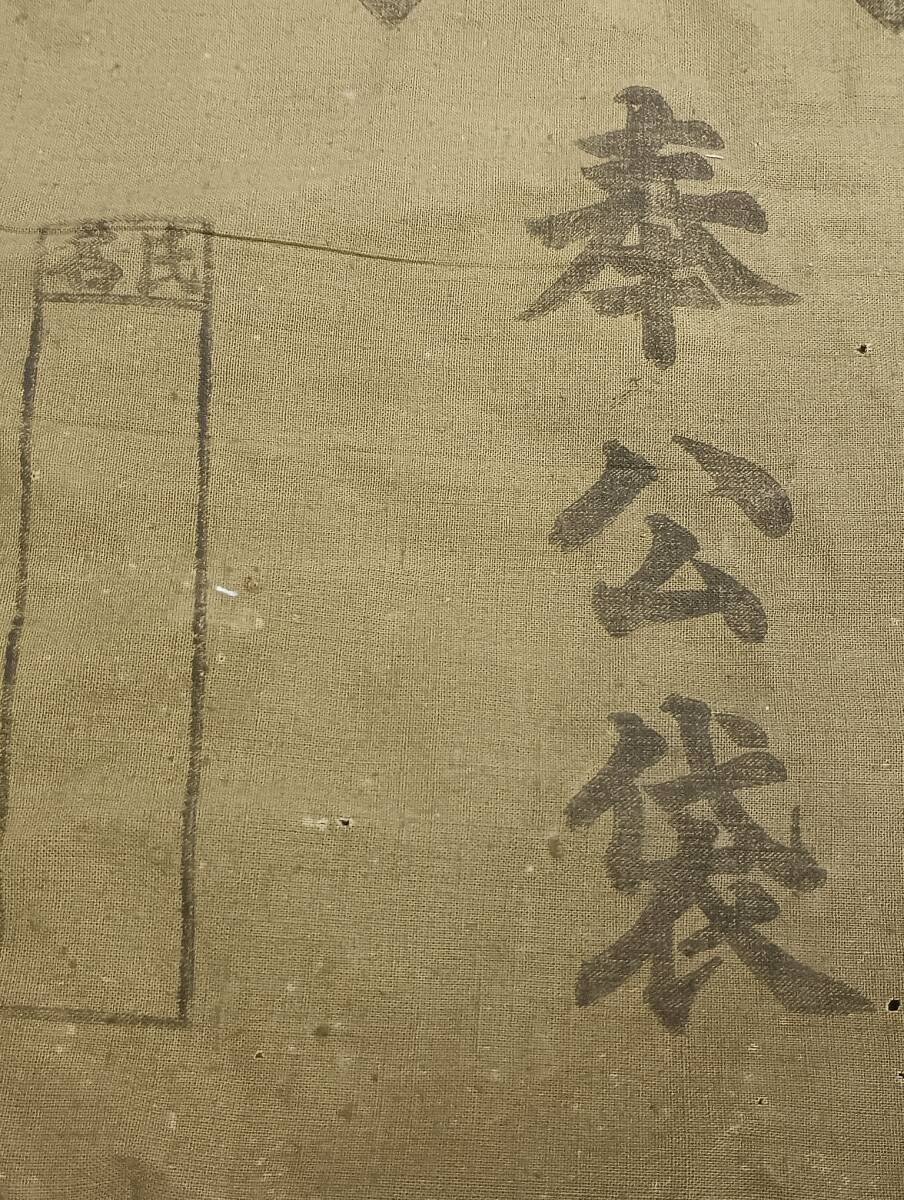 奉公袋
氏名